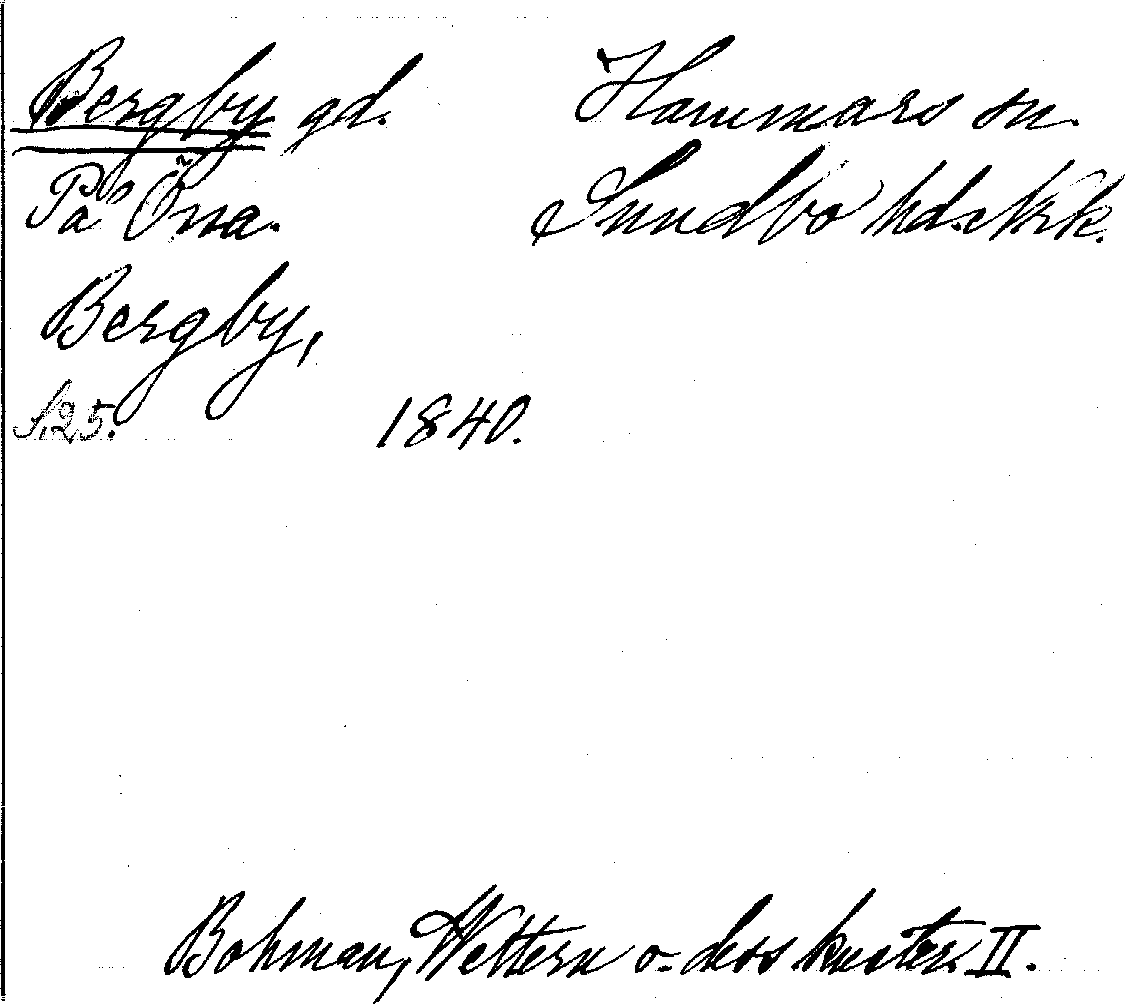 Bergby gd. Hammars sn.
På Öna. Sundbo hd. Nrk.
Bergby,
S. 25. 1840.
Bohman, Wettern o. dess kuster. II.